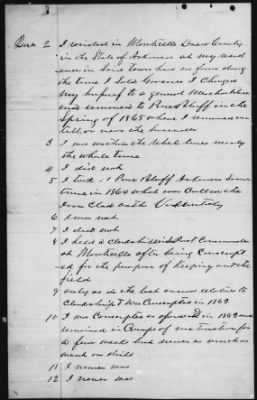 2 I resided in Monticello Drew County
in the State of Arkansas at my
in Town
the time I Sold I Changed
my to a general Merchandise
and removed to Pine Bluff in the
Spring of 1865 where I
till or near the Surrender
3 I was within the Rebel lines nearly
the whole time
4 I did not
5 I took it Pine Bluff Arkansas Some
time in 1865 which was Called the
Iron Clad oath Voluntarily
6 I was not
7 I did not
8 I held a Clerkship in Post
at Monticello after being Conscript
ed for the purpose of Keeping out the
field
9 only as the last answer relative to
Clerkship I was Conscripted in 1863
10 I was Conscripted as aforesaid in 1863 and
remained in Camp of instruction for
a few weeks but never so much as
went on drill
11 I never was
12 I never was